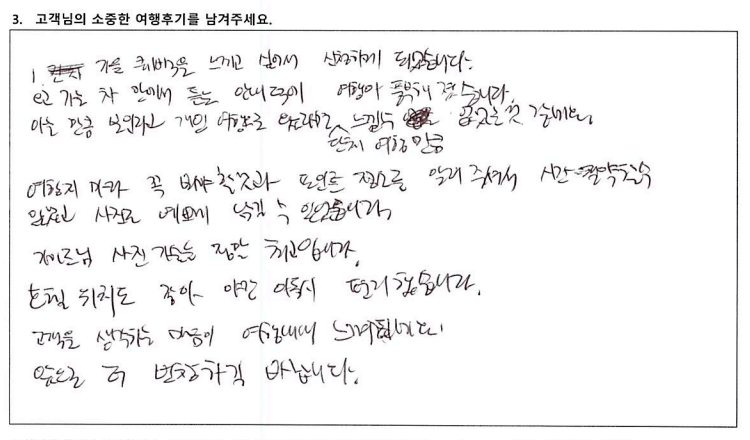 3. 고객님의 소중한 여행후기를 남겨주세요.
가을 느끼고 싶어서 신청하게 되었습니다.
오고 가는 차 안에서 듣는 안내 덕에 여행이 풍부해 졌습니다.
아는 만큼 보인다고 개인 여행으로 느낄수 없었을것 같네요.
단체 여행 만큼
여행지 마다 꼭 봐야 할 것과 포인트 장소를 알려 주셔서 시간 절약할수
있었고 사진도 예쁘게 남길 수 있었습니다.
가이드님 사진 기술은 정말 최고입니다.
호텔 위치도 좋아 야간 이동시 편리했습니다.
고객을 생각하는 마음이 여행내내 느껴집니다.
앞으로 더 번창하길 바랍니다.